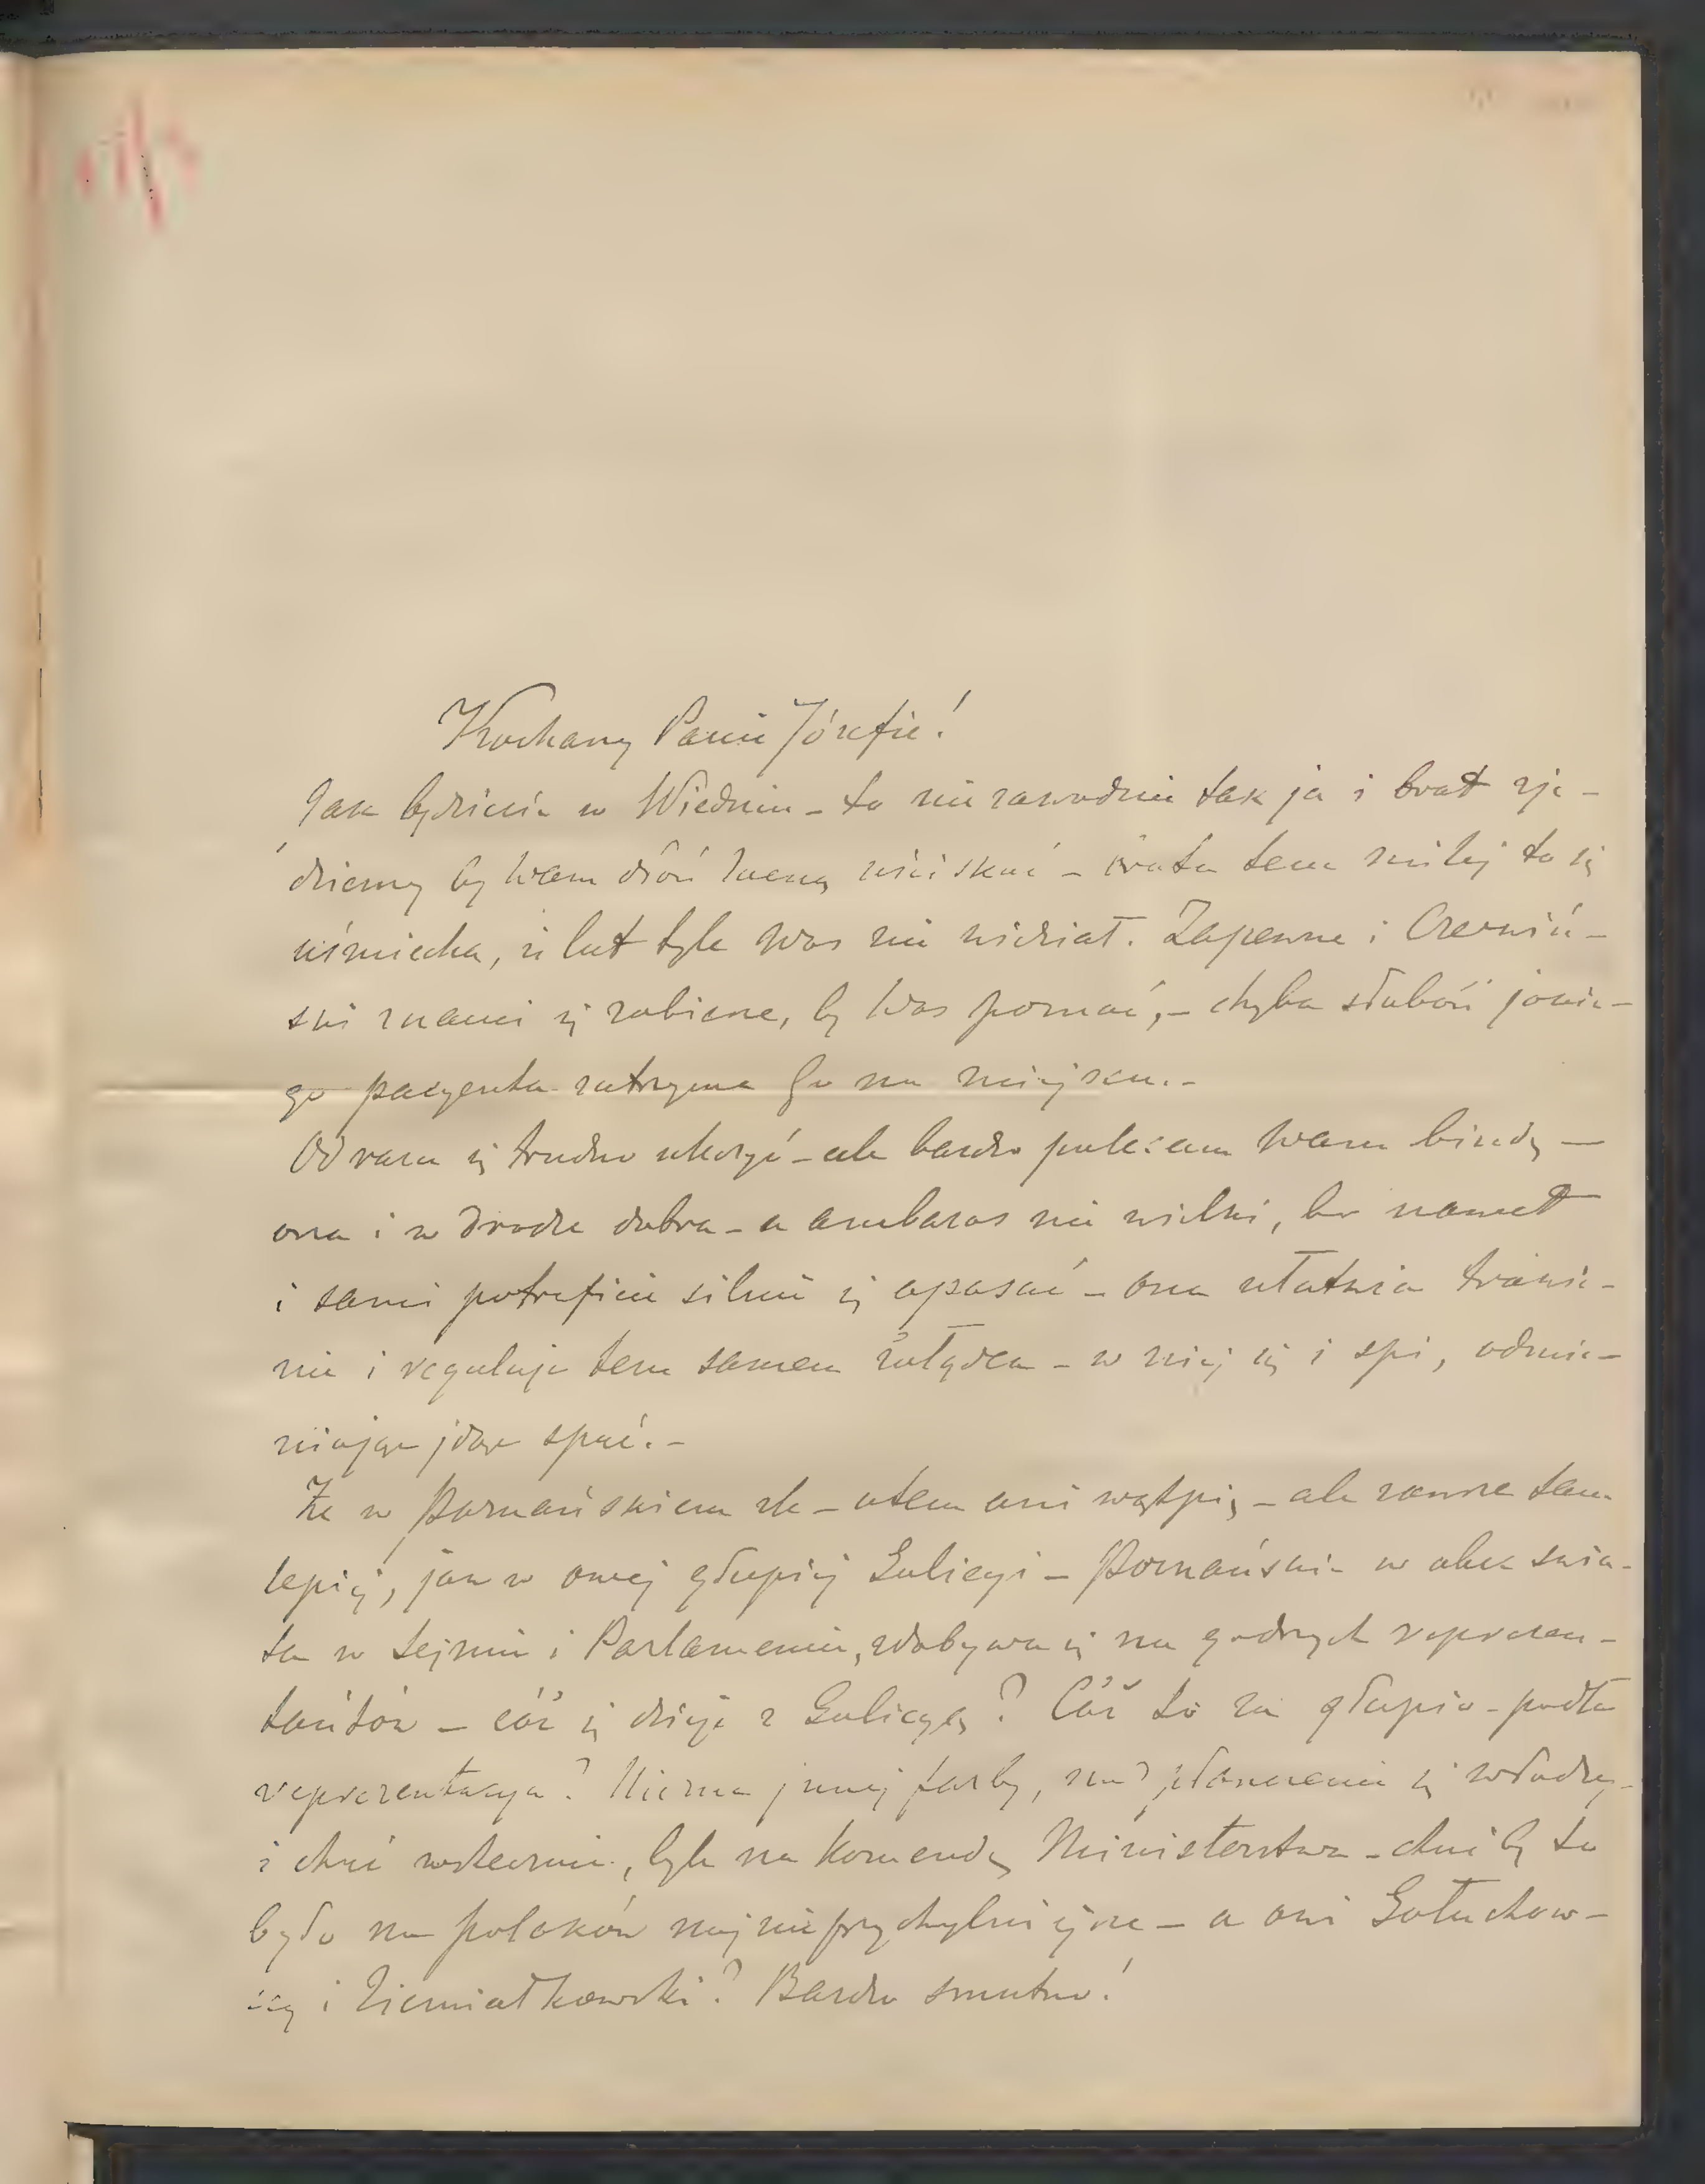 Kochany Panie Józefie!
Jak będziecie w Wiedniu – to niezawodnie tak ja i brat zje-
dziemy by Wam dłoń Waszą uściskać – bratu tem milej to się
uśmiecha, iż lat tyle Was nie widział. Zapewne i Czerwiń-
ski znaci się zabierze, by Was poznać, – chyba słabość jakie-
go pacyenta zatrzyma Go na miejscu. –
Od razu się trudno ułożyć – ale bardzo polecam Wam bindę –
ona i w drodze dobra – a ambaras nie wielki, bo nawet
i sami potraficie silnie się opasać – ona ułatwia trawie-
nie i reguluje tem samem żołądek – w niej się i śpi, odmie-
niając idąc spać. –
Że w Poznańskiem źle – o tem ani wątpię – ale zawsze tam
lepiej, jak w owej głupiej Galicyi – Poznańskie w obec świa-
ta w Sejmie i Parlamencie, zdobywa się na godnych reprezen-
tantów – cóż się dzieje z Galicyą? Cóż to za głupio-podła
reprezentacya? Niema innej farby, nad kłanianie się władzy –
i choć wstecznie, byle na komendę Ministerstwa – choćby to
było na polaków najnieprzychylniejsze – a oni Gołuchow-
scy i Ziemiałkowski? Bardzo smutno!